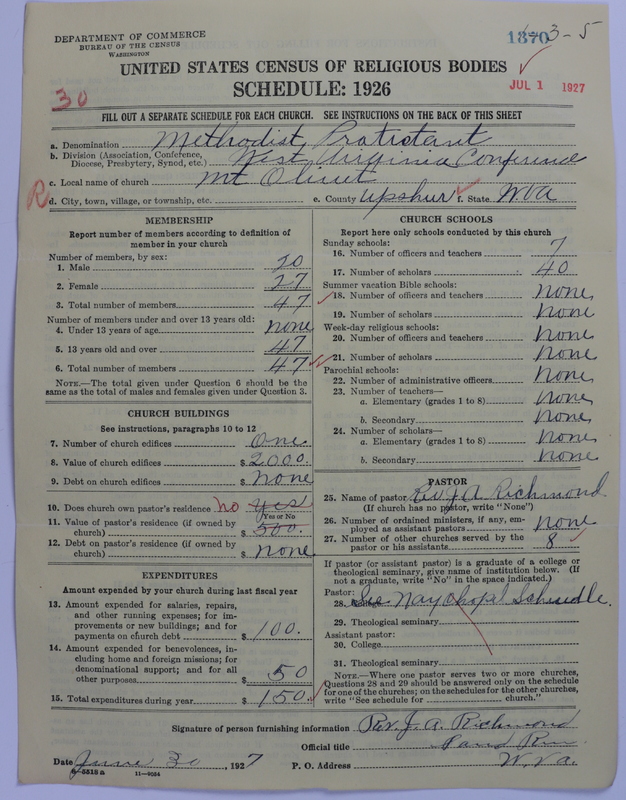 DEPARTMENT OF COMMERCE
BUREAU OF THE CENSUS
WASHINGTON
1370 3-5
UNITED STATES CENSUS OF RELIGIOUS BODIES
SCHEDULE: 1926
JUL 1 1927
30
FILL OUT A SEPARATE SCHEDULE FOR EACH CHURCH. SEE INSTRUCTIONS ON THE BACK OF THIS SHEET
a. Denomination Methodist Protistant
b. Division (Association, Conference, Diocese, Presbytery, Synod, etc.) West Virginia Conference
c. Local name of church Mt Olivet
R
d. City, town, village, or township, etc. e. County Upshur f. State W.VA
MEMBERSHIP
Report number of members according to definition of
member in your church
Number of members, by sex:
1. Male 20
2. Female 27
3. Total number of members 47
Number of members under and over 13 years old:
4. Under 13 years of age none
5. 13 years old and over 47
6. Total number of members 47
NOTE.—The total given under Question 6 should be the
same as the total of males and females given under Question 3.
CHURCH BUILDINGS
See instructions, paragraphs 10 to 12
7. Number of church edifices One
8. Value of church edifices $ 2000.
9. Debt on church edifices $ none
10. Does church own pastor's residence no yes
(Yes or No)
11. Value of pastor's residence (if owned by
church) $ 500.
12. Debt on pastor's residence (if owned by
church) $ none
EXPENDITURES
Amount expended by your church during last fiscal year
13. Amount expended for salaries, repairs,
and other running expenses; for im-
provements or new buildings; and for
payments on church debt $ 100.
14. Amount expended for benevolences, in-
cluding home and foreign missions; for
denominational support; and for all
other purposes $ 50
15. Total expenditures during year $ 150.
CHURCH SCHOOLS
Report here only schools conducted by this church
Sunday schools:
16. Number of officers and teachers 7
17. Number of scholars 40
Summer vacation Bible schools:
18. Number of officers and teachers none
19. Number of scholars none
Week-day religious schools:
20. Number of officers and teachers none
21. Number of scholars none
Parochial schools:
22. Number of administrative officers none
23. Number of teachers—
a. Elementary (grades 1 to 8) none
b. Secondary none
24. Number of scholars—
a. Elementary (grades 1 to 8) none
b. Secondary none
PASTOR
25. Name of pastor Rev J. A. Richmond
(If church has no pastor, write "None")
26. Number of ordained ministers, if any, em-
ployed as assistant pastors none
27. Number of other churches served by the
pastor or his assistants 8
If pastor (or assistant pastor) is a graduate of a college or
theological seminary, give name of institution below. (If
not a graduate, write "No" in the space indicated.)
Pastor:
28. See Chapel Schedle.
29. Theological seminary
Assistant pastor:
30. College
31. Theological seminary
NOTE.—Where one pastor serves two or more churches,
Questions 28 and 29 should be answered only on the schedule
for one of the churches; on the schedules for the other churches,
write "See schedule for church."
Signature of person furnishing information Rev. J. A. Richmond
Official title
Date June 30, 1927 P. O. Address W.Va.
8-5518a 11-9054